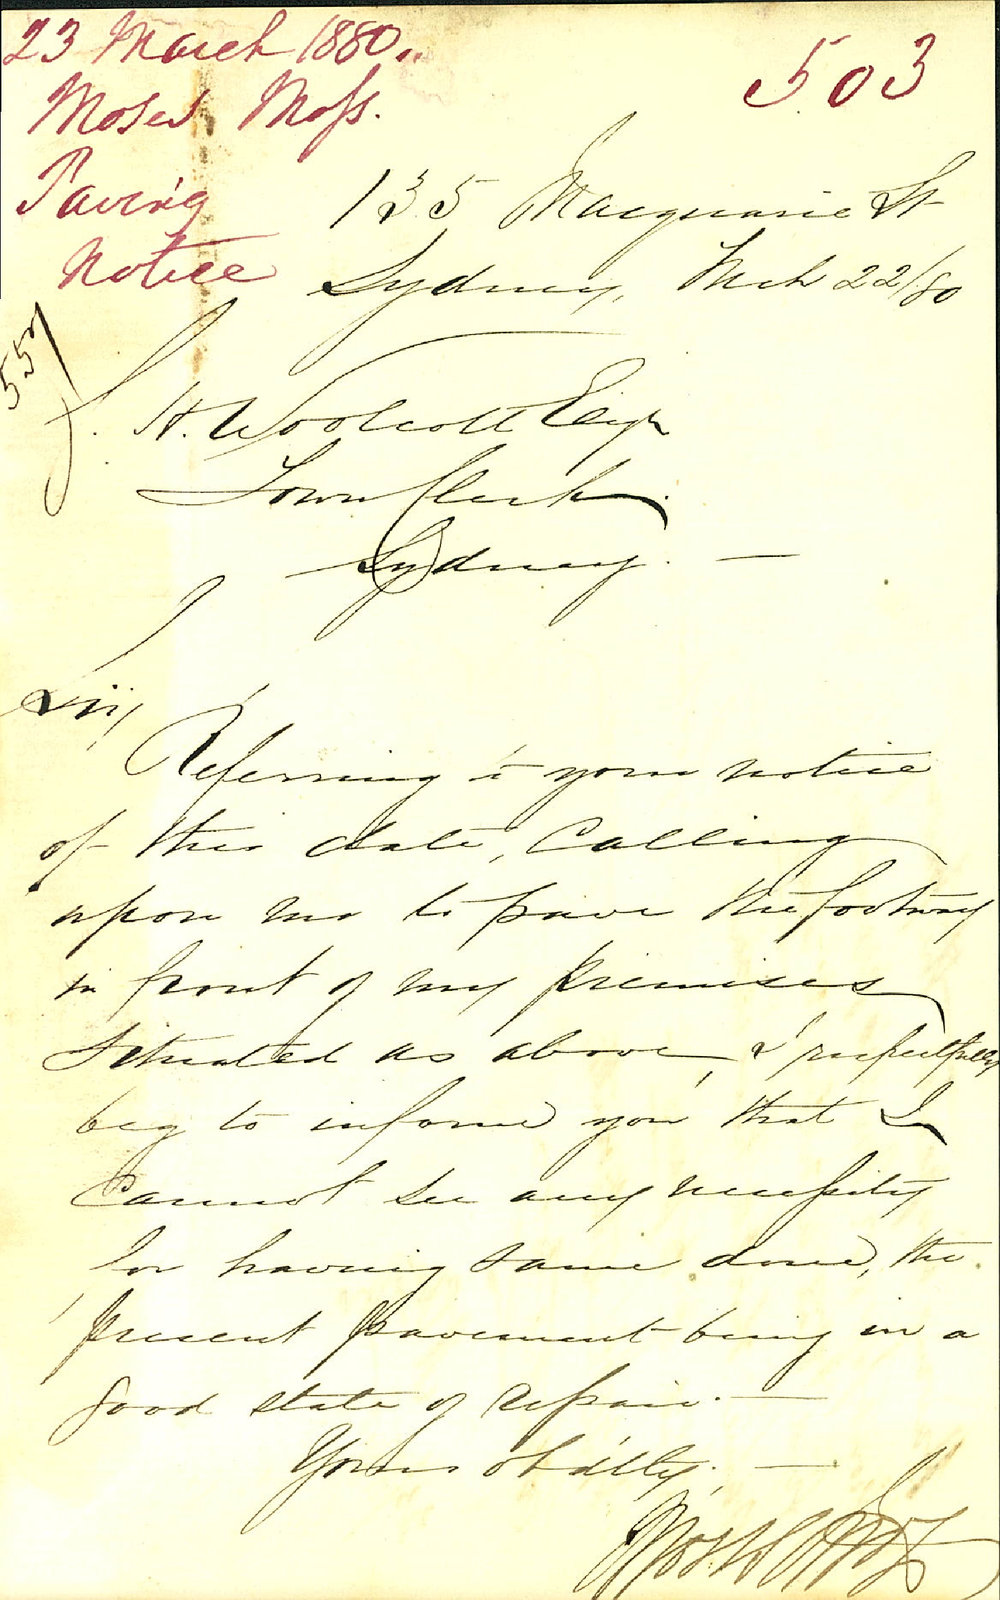 23 March 1880.
Moses Moss.
Paving
Notice
503
135 Macquarie St
Sydney, Mch 22/80
557
H. Woolcott Esqr
Town Clerk
Sydney. —
Sir,
Referring to your notice
of this date, Calling
upon me to pave the footway
in front of my premises
situated as above, I respectfully
beg to inform you that I
Cannot see any necessity
for having same done, the
present pavement being in a
good state of repair. —
Yours ob'dtly, —
Moses Moss